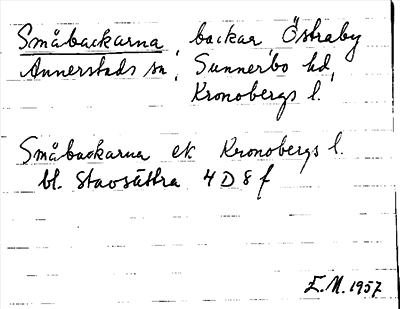 Småbackarna, backar, Östraby
Annerstads sn, Sunnerbo hd,
Kronobergs l.
Småbackarna ek Kronobergs l.
bl. Stavsättra 4 D 8 f
E.M. 1957